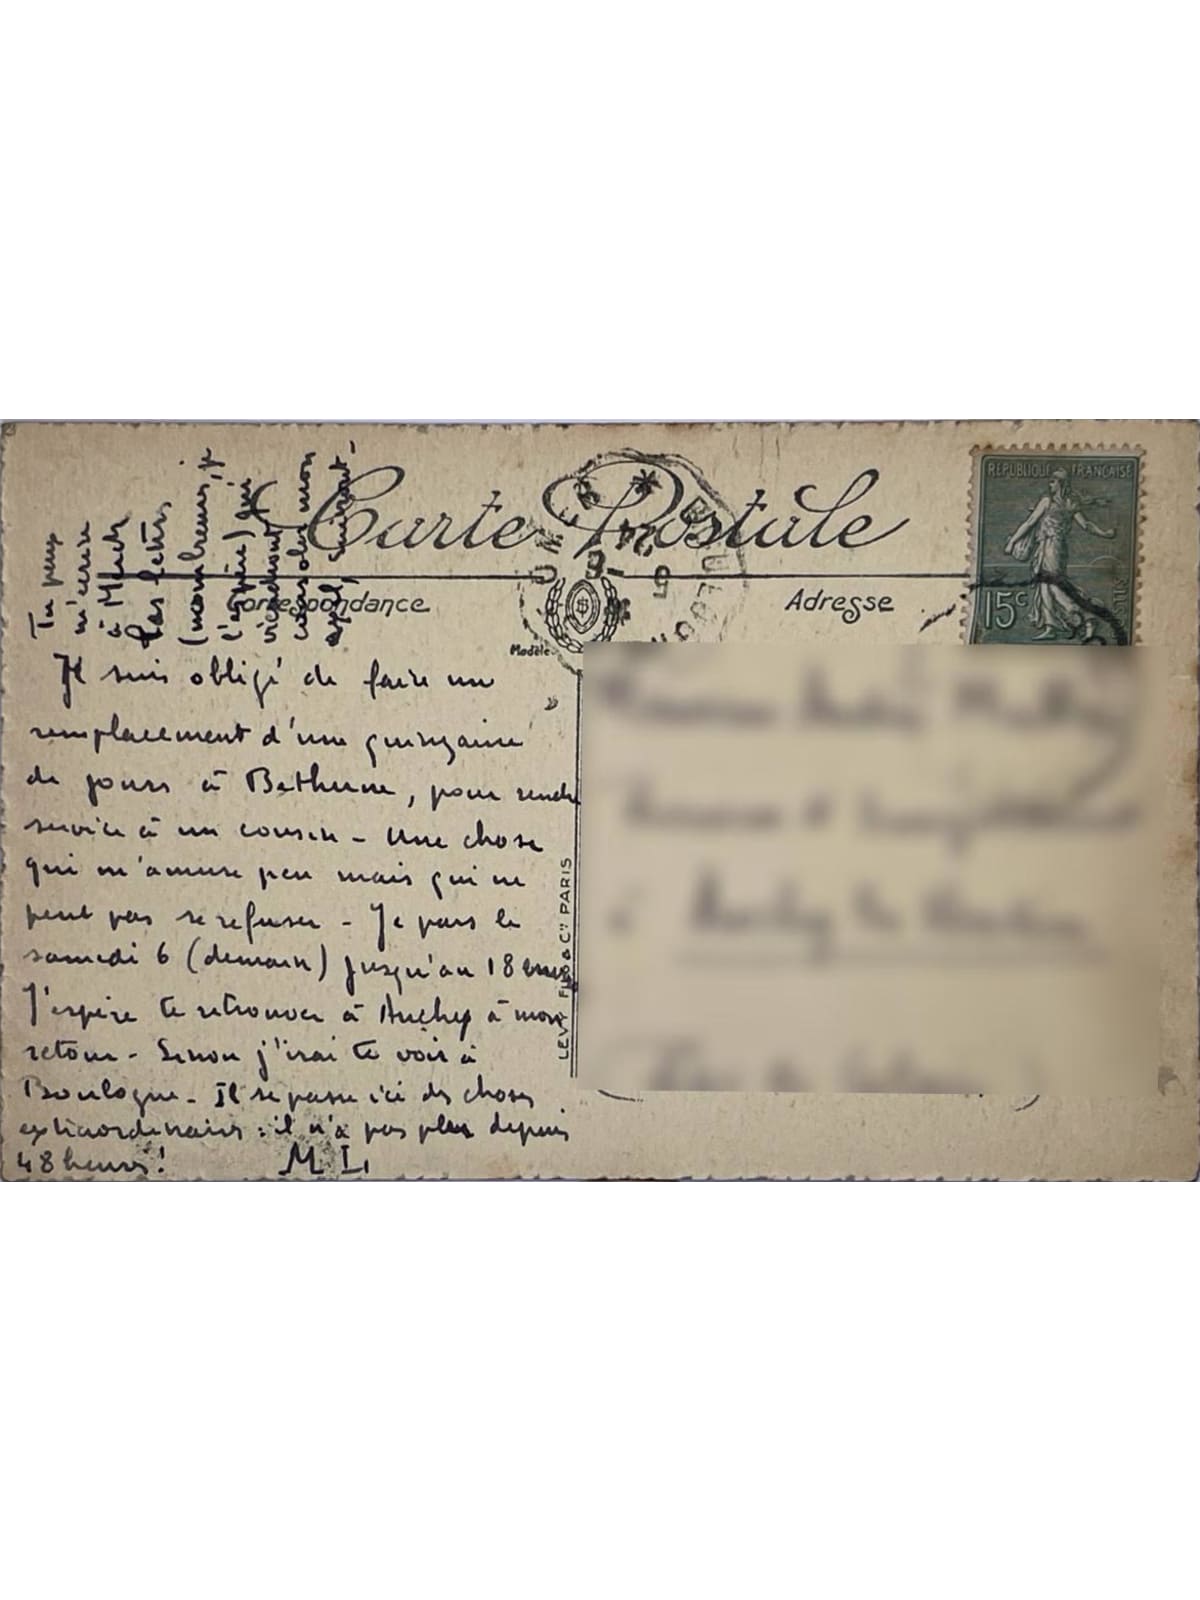 Carte Postale
RÉPUBLIQUE FRANÇAISE
15c
Correspondance
Adresse
Modèle
LEVY FILS & Cie PARIS
Tu peux
m'écrire
à
Les lettres
(nombreuses, je
l'espère) lui
viendront
consoler mon
Il suis obligé de faire un
remplacement d'une quinzaine
de jours à Bethune, pour rendre
service à un cousin - Une chose
qui m'amuse peu mais qui ne
peut pas se refuser - Je pars le
samedi 6 (demain) jusqu'au 18
J'espère te retrouver à Auchy à mon
retour - Sinon j'irai te voir à
Boulogne - Il se passe ici des choses
extraordinaires : il n'a pas plu depuis
48 heures !
M L